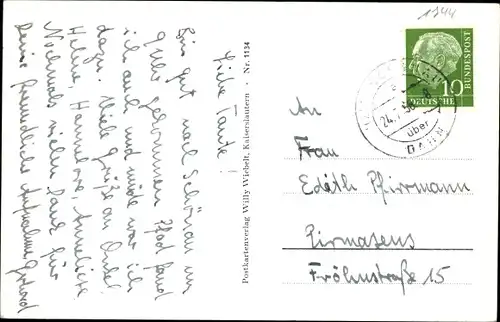 1344
Liebe Tante!
Bin gut nach Schönau
gekommen. Pfad fand
ich auch und müde war ich
dazu. Viele Grüße an Onkel
Helme, Hannelore, Anneliese
Nochmals vielen Dank für
Deine freundliche Aufnahme, Gerhard
Postkartenverlag Willy Wiebelt, Kaiserslautern · Nr. 1134
10
DEUTSCHE
BUNDESPOST
24.7.56
über
DAHN
An
Frau
Edith Pfirrmann
Pirmasens
Fröhnstraße 15